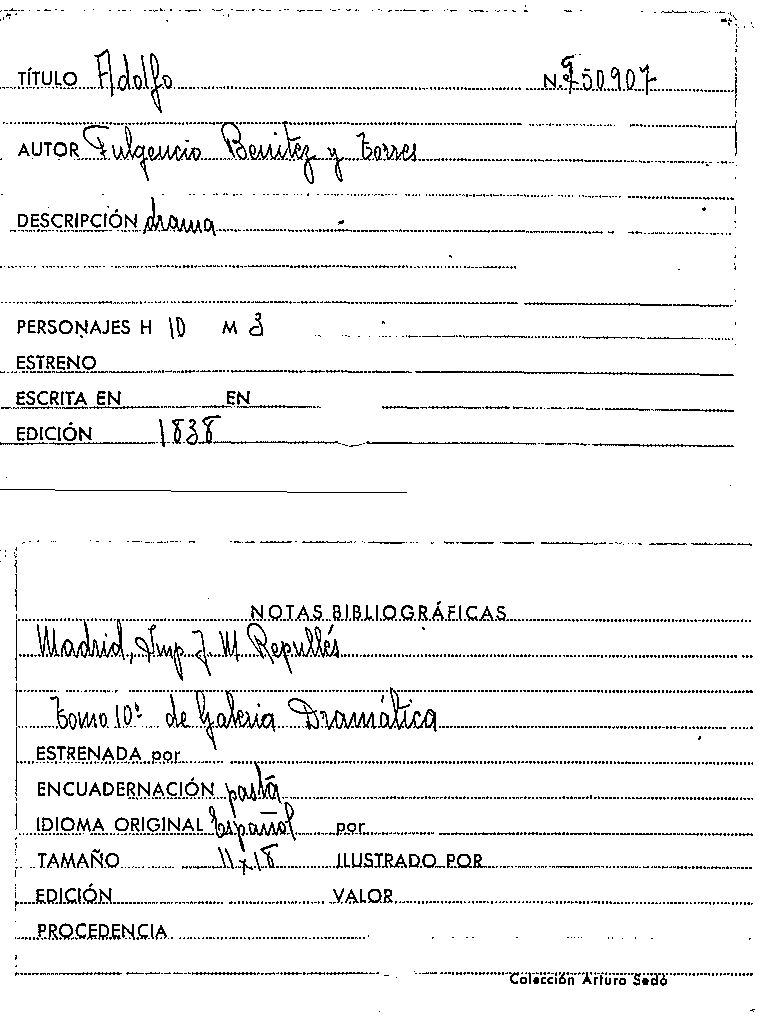 TÍTULO Adolfo N.º 50907
AUTOR Fulgencio Benitez y Torres
DESCRIPCIÓN drama
PERSONAJES H 10 M 3
ESTRENO
ESCRITA EN EN
EDICIÓN 1838
NOTAS BIBLIOGRÁFICAS
Madrid, Imp J. M Repullés
Tomo 10º de Galeria Dramática
ESTRENADA por
ENCUADERNACIÓN pasta
IDIOMA ORIGINAL Español por
TAMAÑO 11x18 ILUSTRADO POR
EDICIÓN VALOR
PROCEDENCIA
Colección Arturo Sedó